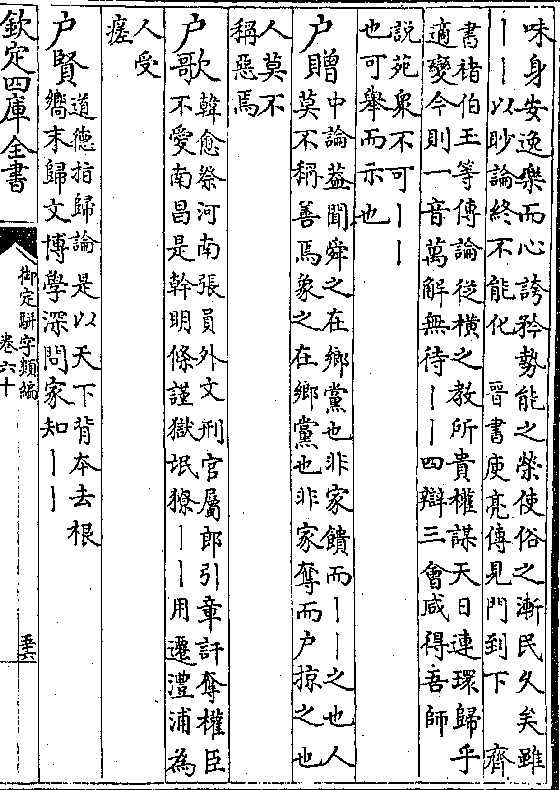 味身安逸樂而心誇矜勢能之榮使俗之漸民久矣雖
丨丨以眇論終不能化　晉書庾亮傳見門到下　齊
書褚伯玉等傳論從横之教所貴權謀天日連環歸乎
適變今則一音萬解無待丨丨四辯三會咸得吾師
説苑衆不可丨丨
也可舉而示也
户贈
中論蓋聞舜之在鄉黨也非家饋而丨丨之也人
莫不稱善焉象之在鄉黨也非家奪而户掠之也
人莫不
稱惡焉
户歌
韓愈祭河南張員外文刑官屬郎引章訐奪權臣
不愛南昌是幹明條謹獄氓獠丨丨用遷澧浦為
人受
瘥
户賢
道德指歸論　是以天下背本去根
嚮末歸文博學深問家知丨丨
欽定四庫全書
御定駢字類編
卷六十